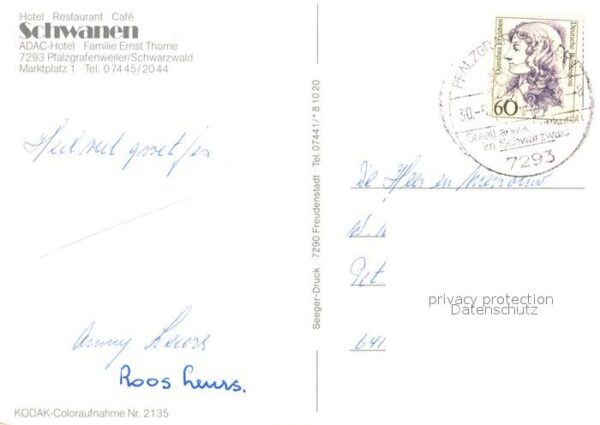 Hotel · Restaurant · Café
Schwanen
ADAC-Hotel · Familie Ernst Thome
7293 Pfalzgrafenweiler/Schwarzwald
Marktplatz 1 Tel. 07445/2044
Heel veel groetjes
Anny Leurs
Roos Leurs.
KODAK-Coloraufnahme Nr. 2135
Seeger-Druck 7290 Freudenstadt Tel. 07441/*81020
60
Deutsche Bundespost
30.-
im Schwarzwald
7293
De Heer en
641
privacy protection
Datenschutz